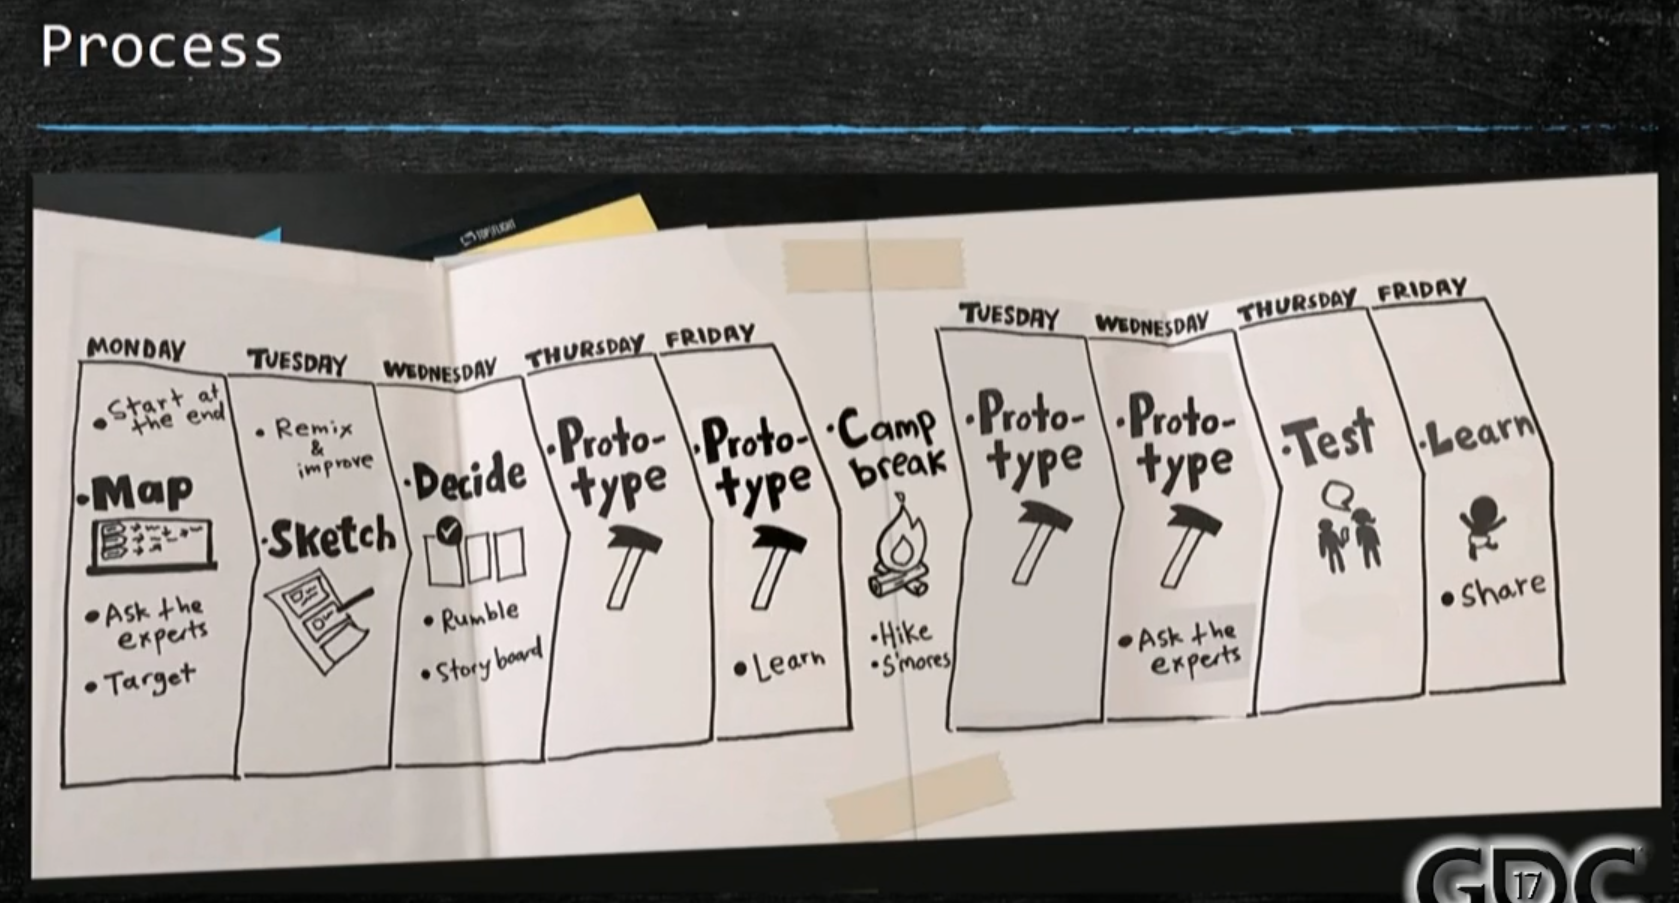 Process
TOPFLIGHT
MONDAY
• Start at
the end
•Map
• Ask the
experts
• Target
TUESDAY
• Remix
&
improve
•Sketch
WEDNESDAY
•Decide
• Rumble
• Storyboard
THURSDAY
•Proto-
type
FRIDAY
•Proto-
type
• Learn
•Camp
break
•Hike
•S'mores
TUESDAY
•Proto-
type
WEDNESDAY
•Proto-
type
• Ask the
experts
THURSDAY
•Test
FRIDAY
•Learn
• Share
GDC
17